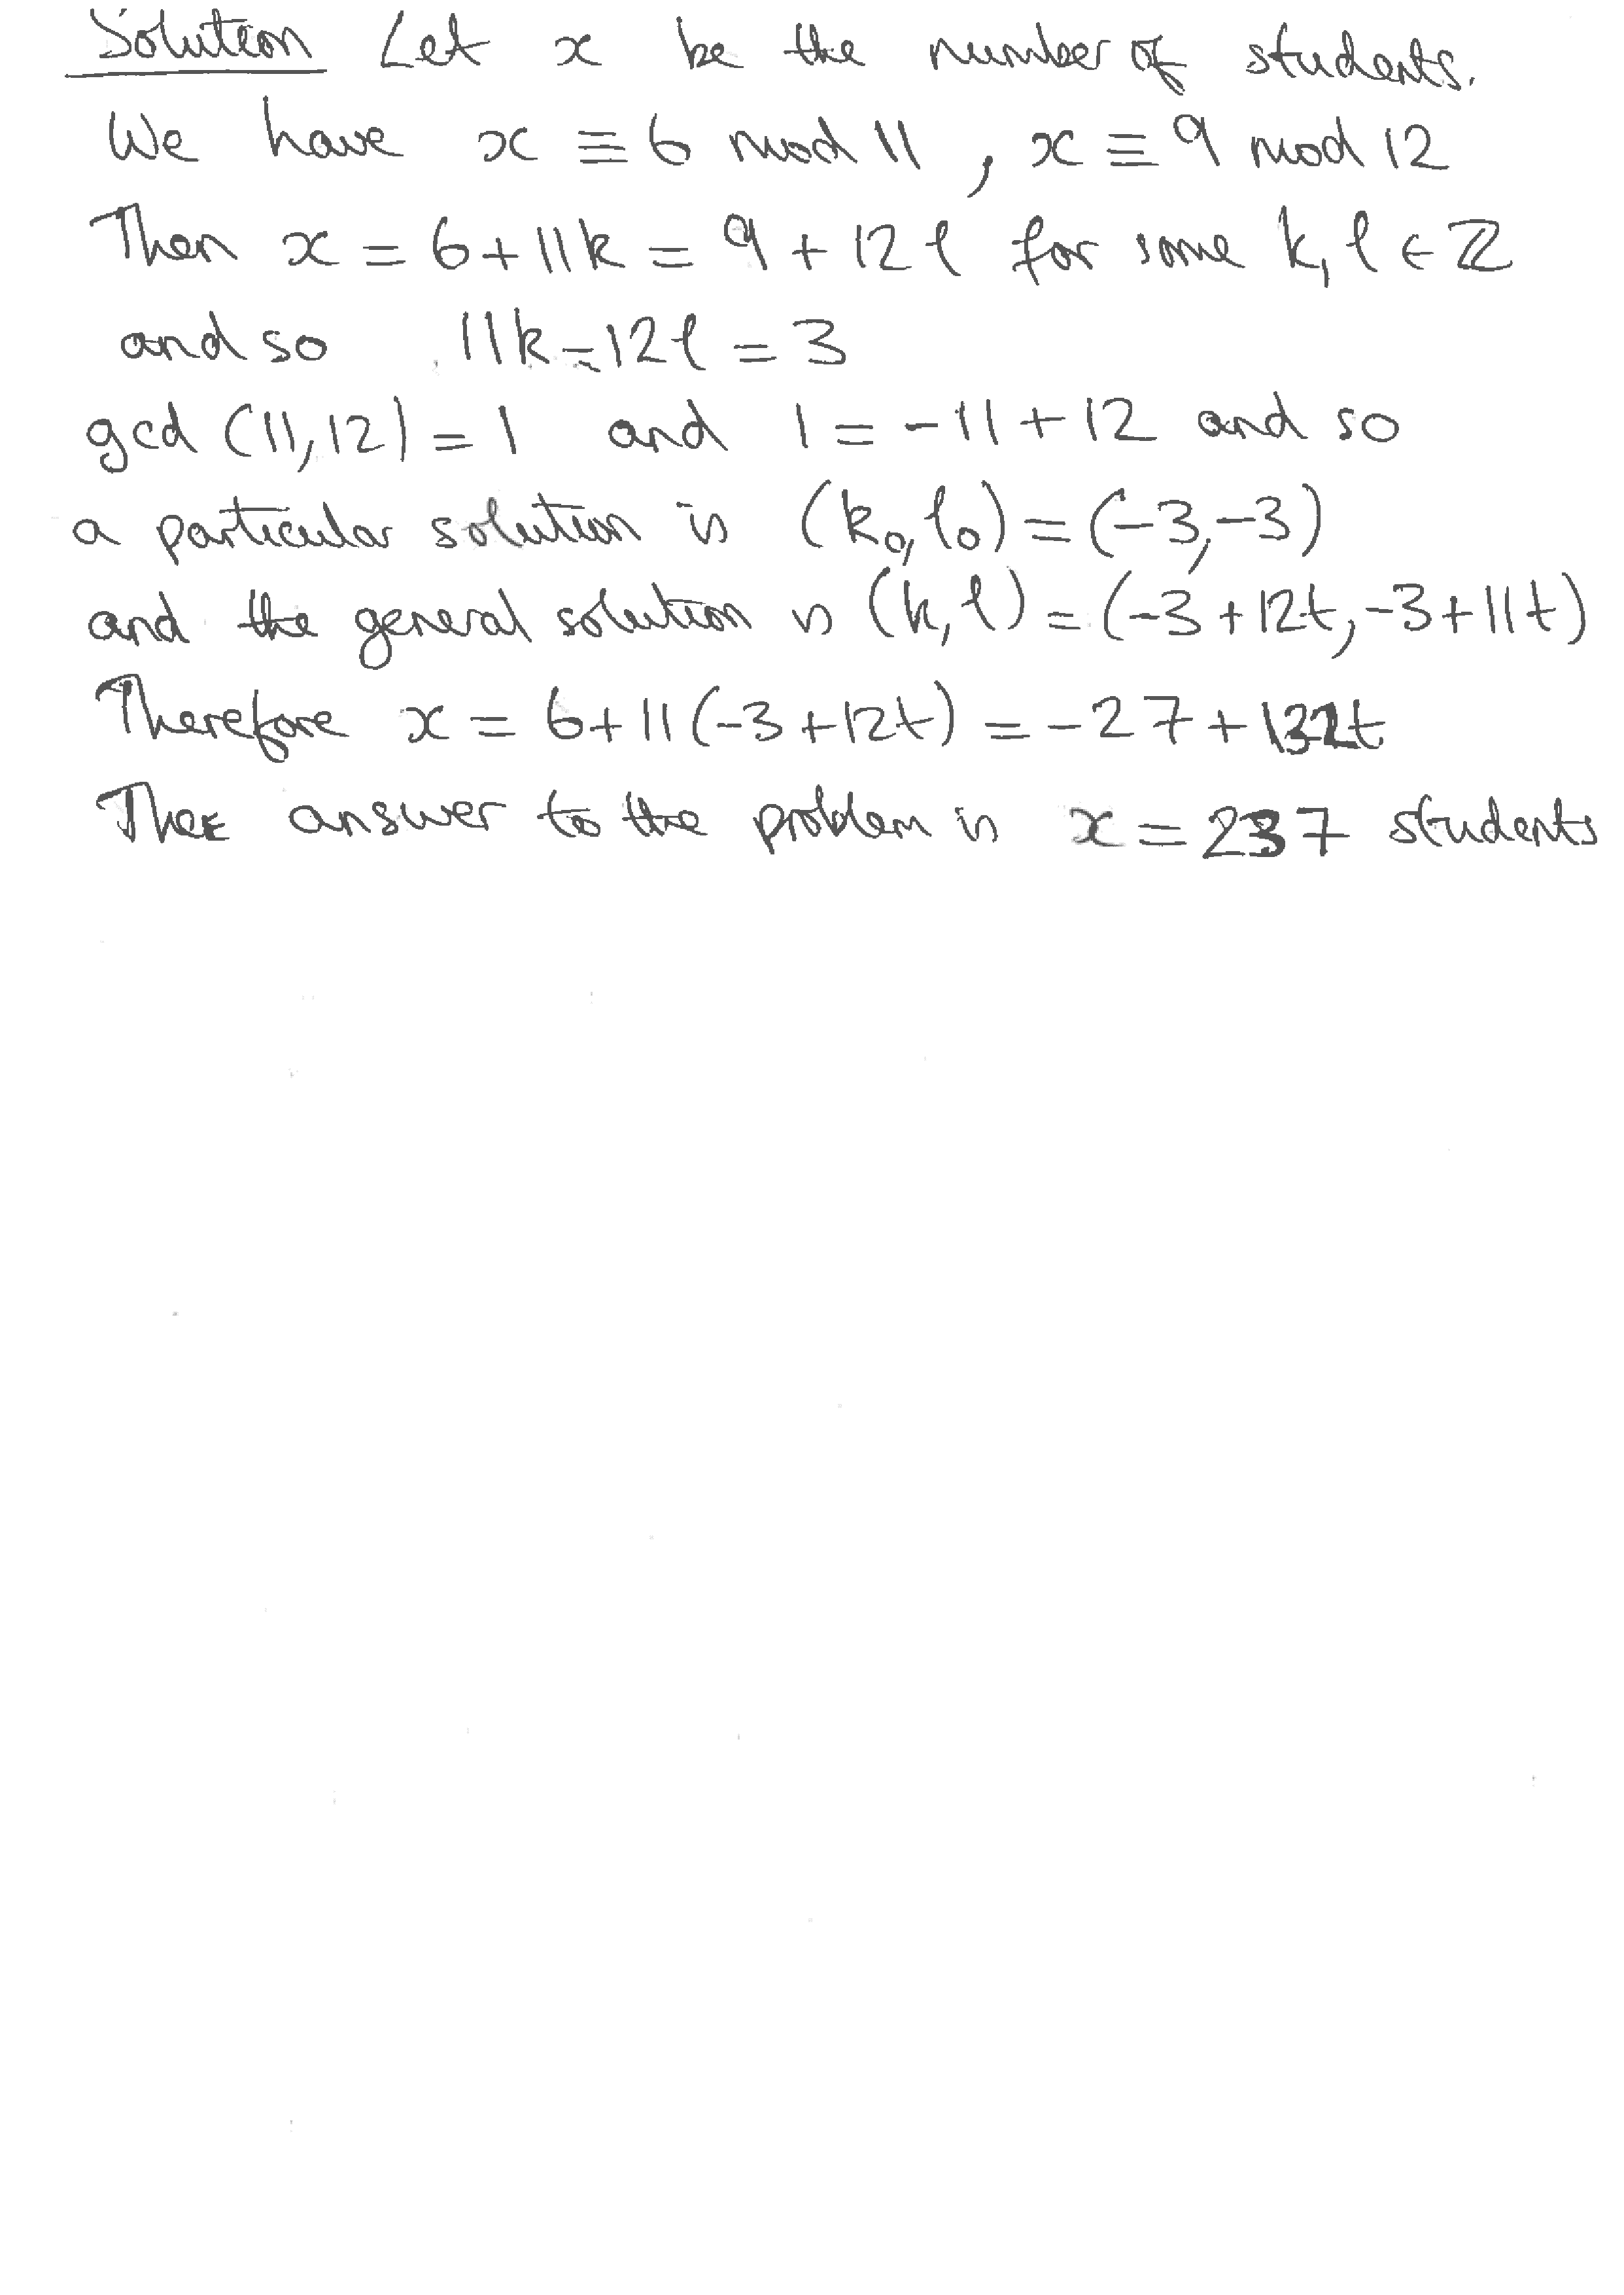 Solution Let x be the number of students.
We have x ≡ 6 mod 11 , x ≡ 9 mod 12
Then x = 6 + 11k = 9 + 12ℓ for some k, ℓ ∈ ℤ
and so 11k - 12ℓ = 3
gcd (11, 12) = 1 and 1 = -11 + 12 and so
a particular solution is (k₀, ℓ₀) = (-3, -3)
and the general solution is (k, ℓ) = (-3 + 12t, -3 + 11t)
Therefore x = 6 + 11(-3 + 12t) = -27 + 132t
The answer to the problem is x = 237 students